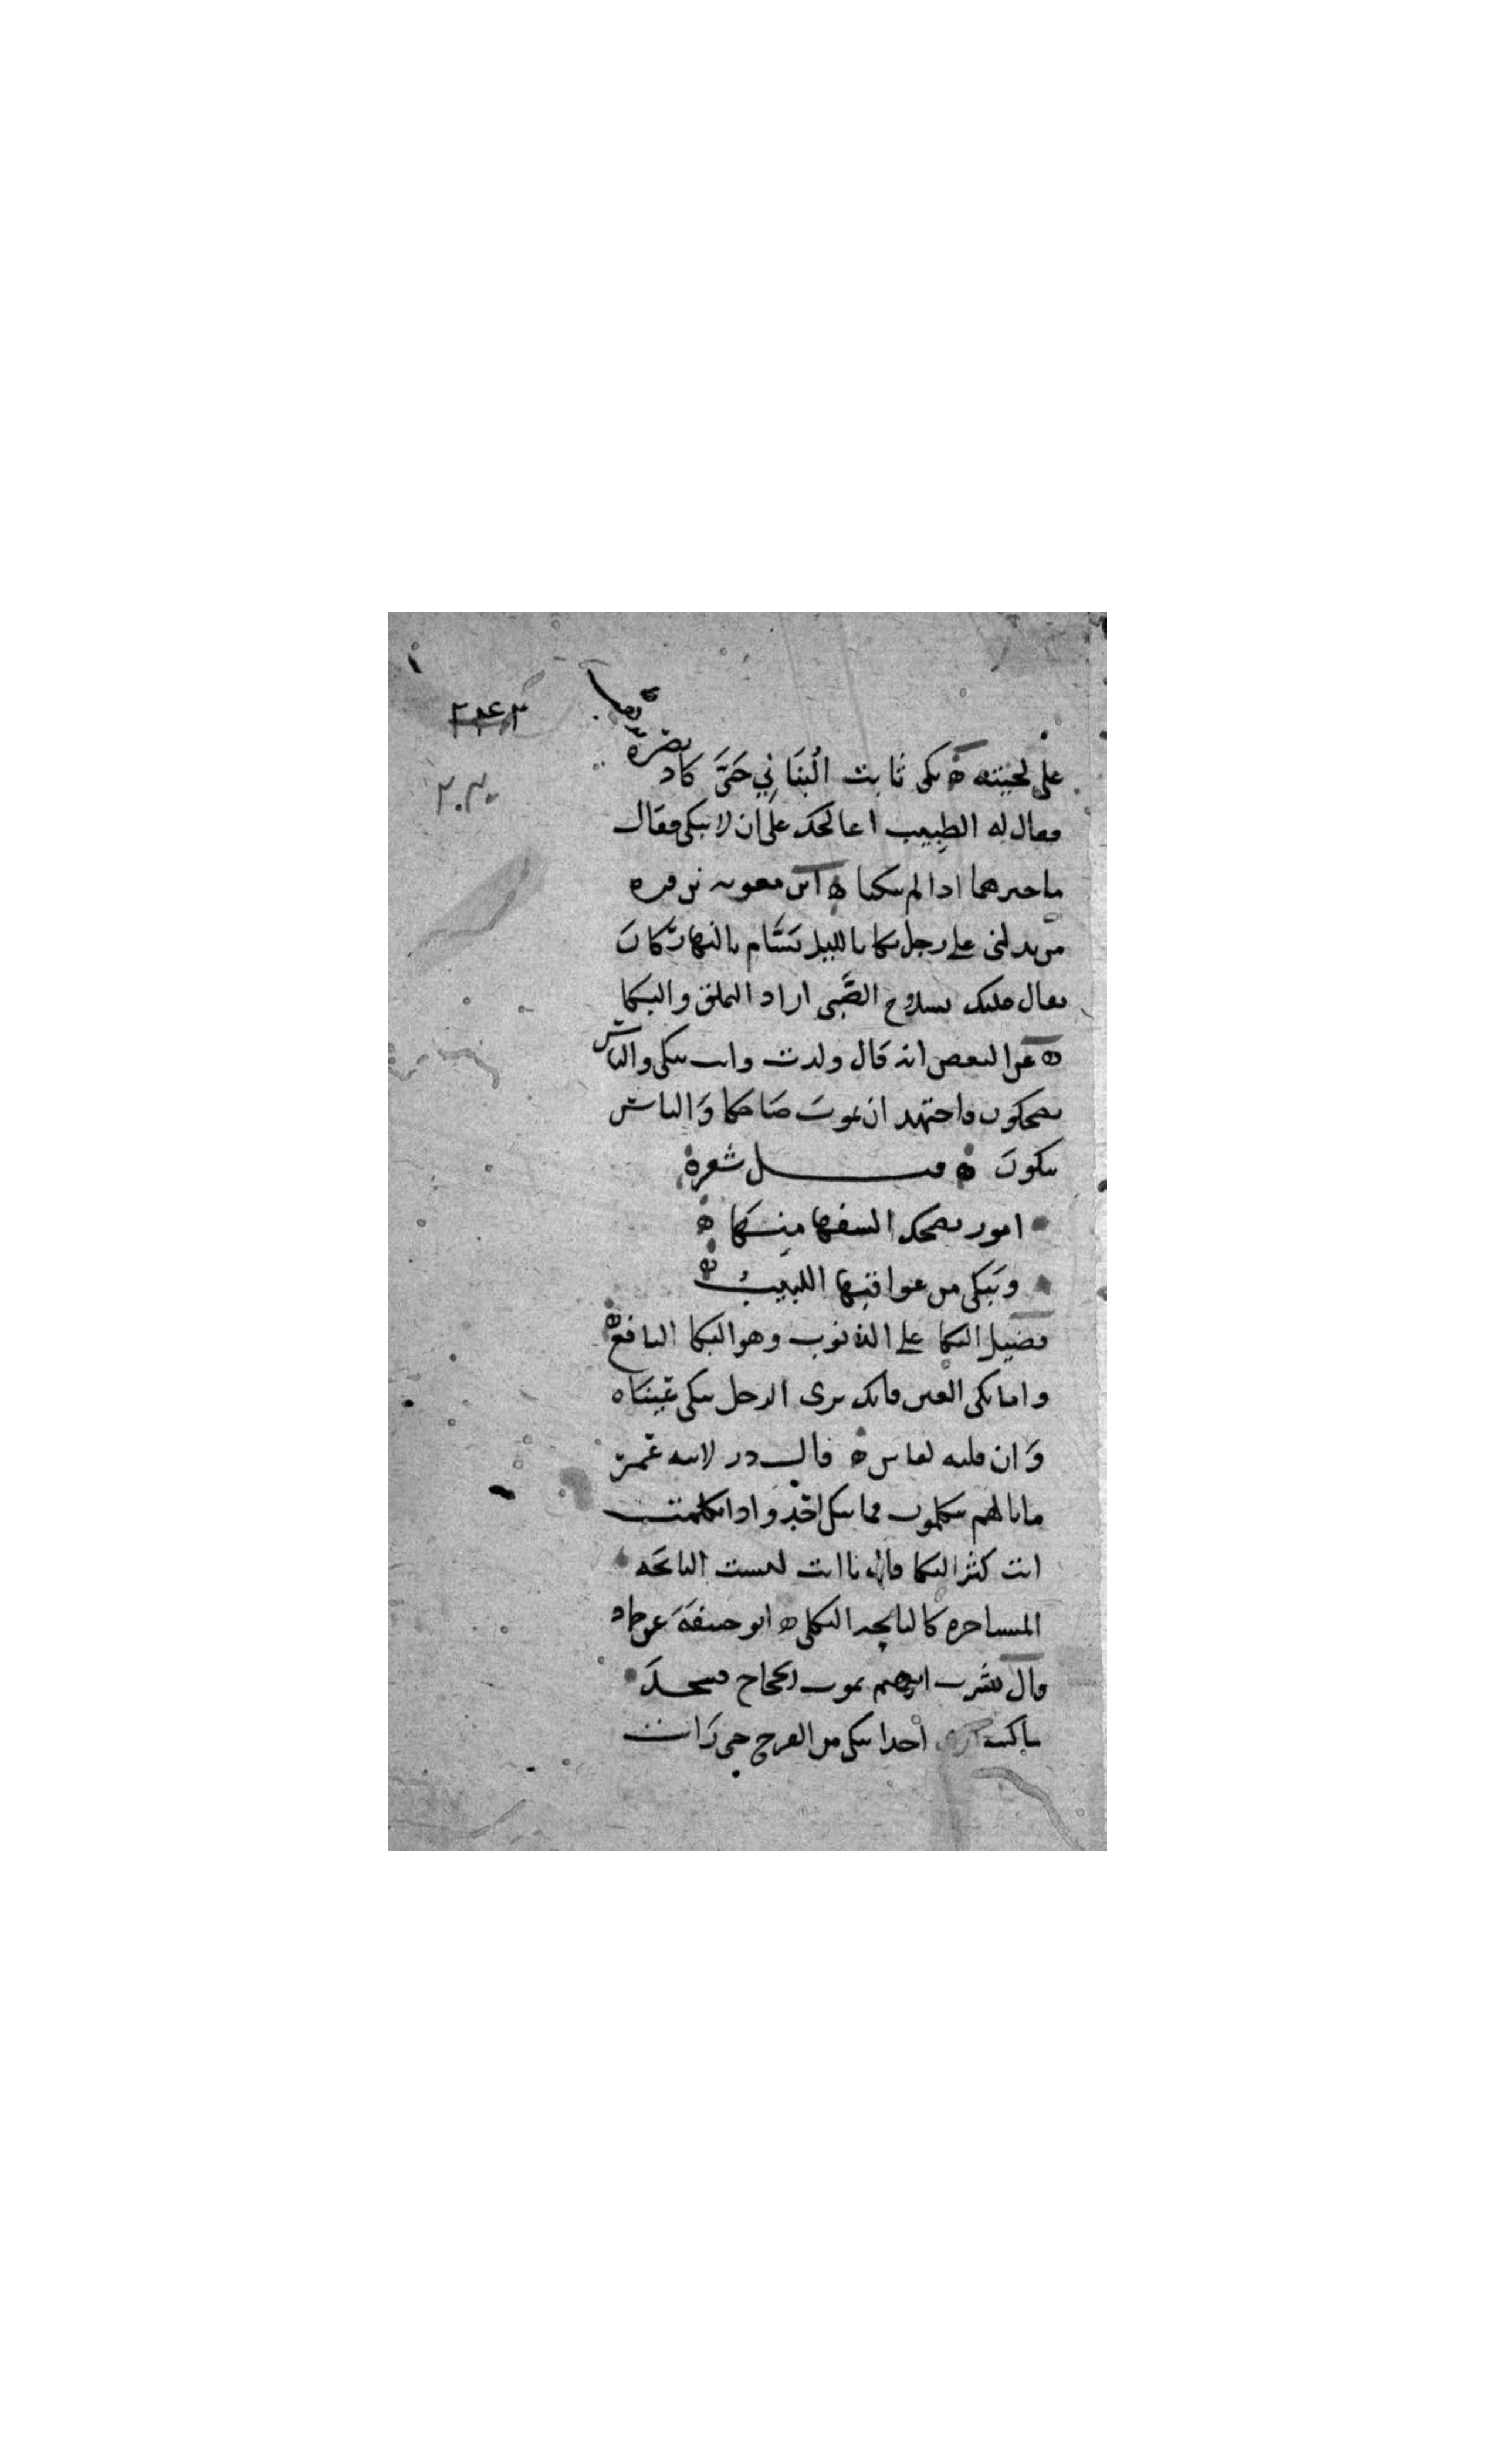 ٢٣٤٣
٢٠٣٠
على لحيته ه بكى ثابت البُنَاني حَتَّى كاد بصره
فقال له الطبيب اعالجك على ان لا تبكي فقال
ما خيرهما اذا لم تبكيا ه اين معوية بن قرة
من يدلني على رجل بكا بالليل بسّام بالنهار كان
يقال عليك بسلاح الصَّبي اراد التملق والبكا
ه عن البعض انه قال ولدت وانت تبكي والناس
يضحكون فاجتهد ان تموت ضاحكا وَالناس
يبكون ه شعر ه
امور يضحك السفها منها ه
وتَبكي من عواقبها اللبيبُ ه
فضيل البكا على الذنوب وهو البكا النافع ه
واما بكى العين فانك ترى الرجل تبكي عيناه
وَان قلبه لقاس ه قال در لابيه عمر
ما بالهم يتكلمون فما يبكي احد واذا تكلمت
انت كثر البكا قال يا ابت ليست النائحه
المستاجره كالنائحه الثكلى ه ابو حنيفة عن حماد
قال بشرت ابرهيم بموت الحجاج فسجد
ما كنت ارى احدا يبكي من الفرح حتى رَات